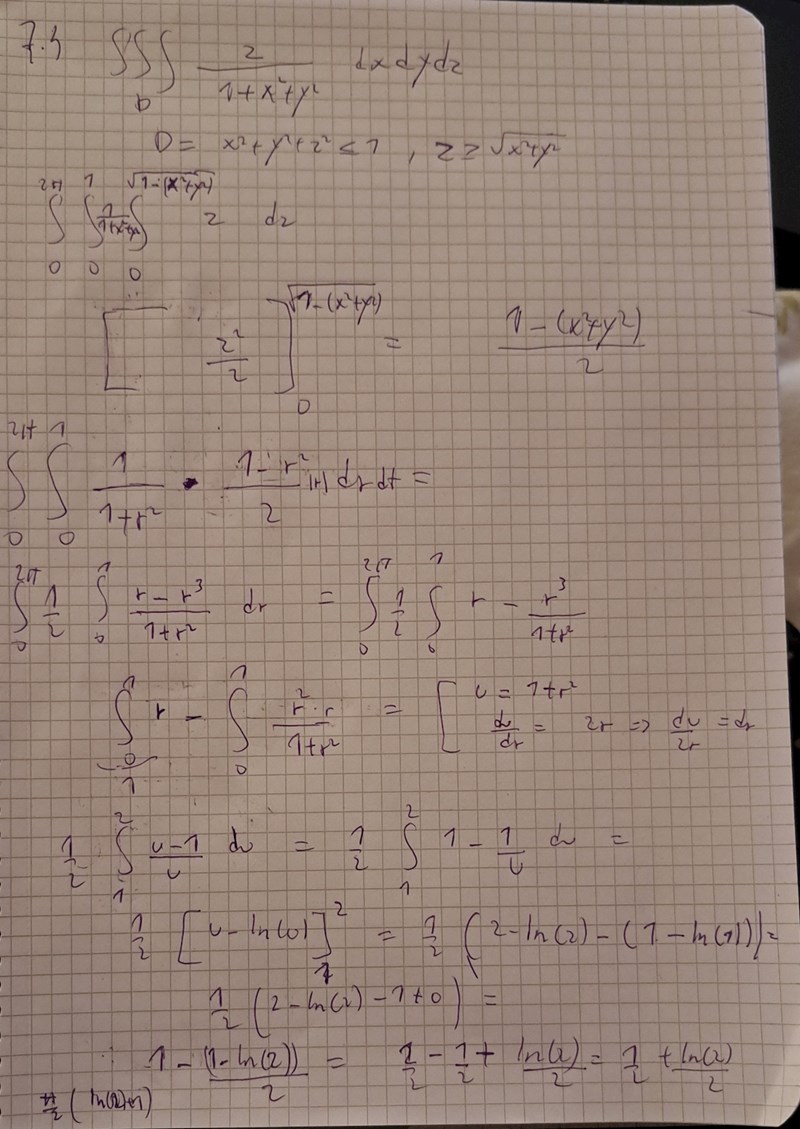 7.4 ∭_D z/(1+x²+y²) dxdydz
D = x²+y²+z² ≤ 1 , z ≥ √(x²+y²)
∫_0^{2π} ∫_0^1 1/(1+x²+y²) ∫_0^{√(1-(x²+y²))} z dz
[ z²/2 ]_0^{√(1-(x²+y²))} = (1-(x²+y²))/2
∫_0^{2π} ∫_0^1 1/(1+r²) · (1-r²)/2 |r| dr dt =
∫_0^{2π} 1/2 ∫_0^1 (r-r³)/(1+r²) dr = ∫_0^{2π} 1/2 ∫_0^1 r - r³/(1+r²)
∫_0^1 r - ∫_0^1 (r²·r)/(1+r²) = [ u = 1+r²
du/dr = 2r => du/2r = dr
1/2 ∫_1^2 (u-1)/u du = 1/2 ∫_1^2 1 - 1/u du =
1/2 [u - ln(u)]_1^2 = 1/2 (2-ln(2)-(1-ln(1))) =
1/2 (2-ln(2)-1+0) =
1 - (1-ln(2))/2 = 2/2 - 1/2 + ln(2)/2 = 1/2 + ln(2)/2
π/2 (ln(2)+1)